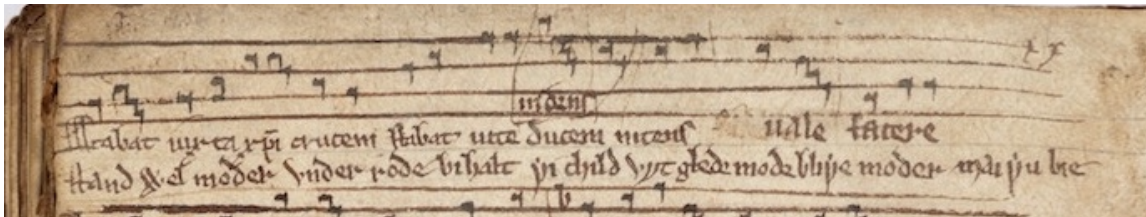 uidens
Stabat iuxta xp̄i crucem stabat uite ducem uidens uale facere
stand wel moder vnder rode bihalt þi child wyt glede mode bliþe moder mai þu bie